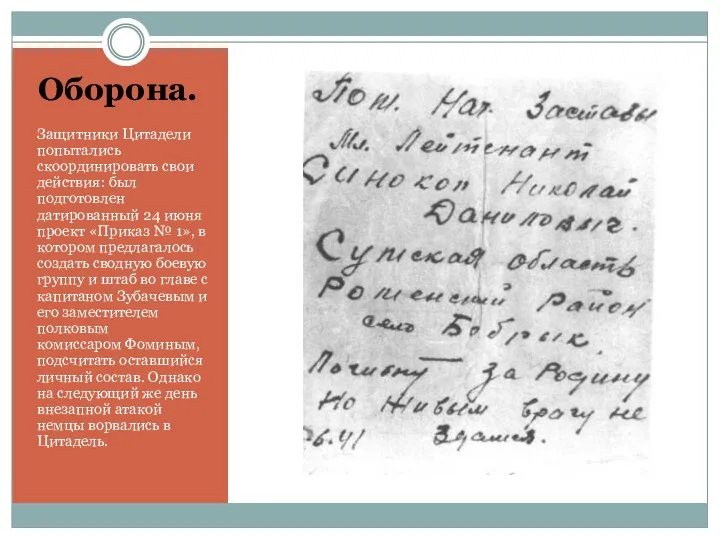 Оборона.
Защитники Цитадели
попытались
скоординировать свои
действия: был
подготовлен
датированный 24 июня
проект «Приказ № 1», в
котором предлагалось
создать сводную боевую
группу и штаб во главе с
капитаном Зубачевым и
его заместителем
полковым
комиссаром Фоминым,
подсчитать оставшийся
личный состав. Однако
на следующий же день
внезапной атакой
немцы ворвались в
Цитадель.
Пом. Нач. Заставы
Мл. Лейтенант
Синокоп Николай
Данилович.
Сумская область
Роменский район
село Бобрык
Погибну за Родину
Но живым врагу не
6.41 здамся.